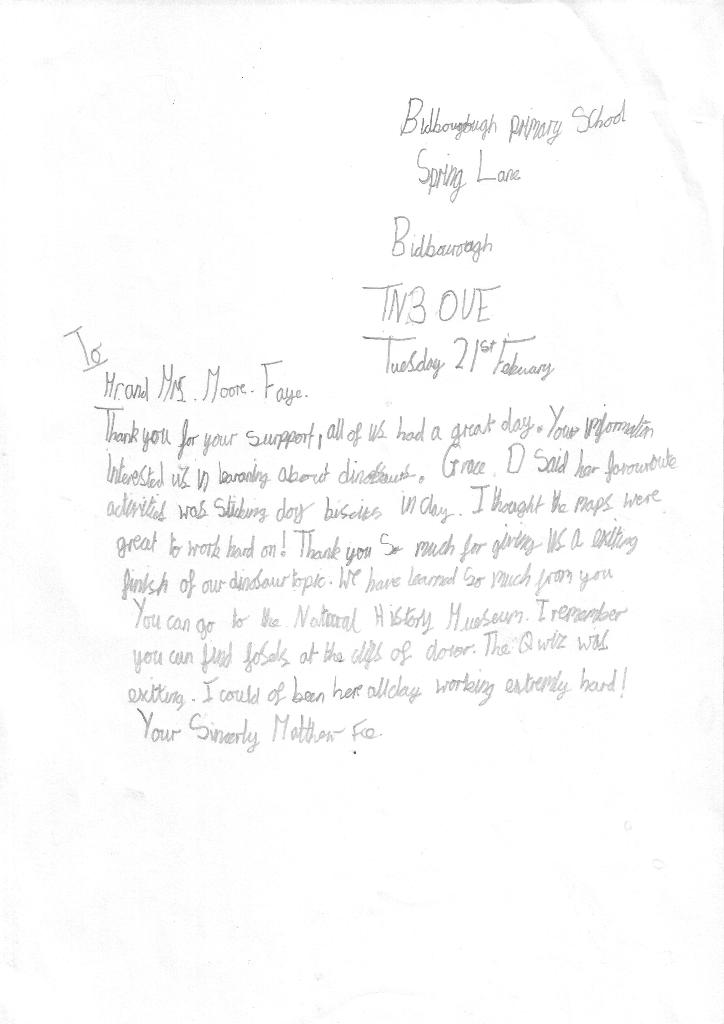 Bidbourough primary School
Spring Lane
Bidbourough
TN3 OUE
Tuesday 21st Febuary
To
Mr. and Mrs. Moore. Faye.
Thank you for your surpport, all of us had a great day. Your information
interested us in learning about dinosaurs. Grace. D said her favourite
activities was Sticking dog biscuits in clay. I thought the maps were
great to work hard on! Thank you so much for giving us a exiting
finish of our dinosaur topic. We have learned so much from you
You can go to the Natural History Museum. I remember
you can find fosels at the clifs of dover. The Qwiz was
exiting. I could of been here all day working extremly hard!
Your Sincerly Matthew